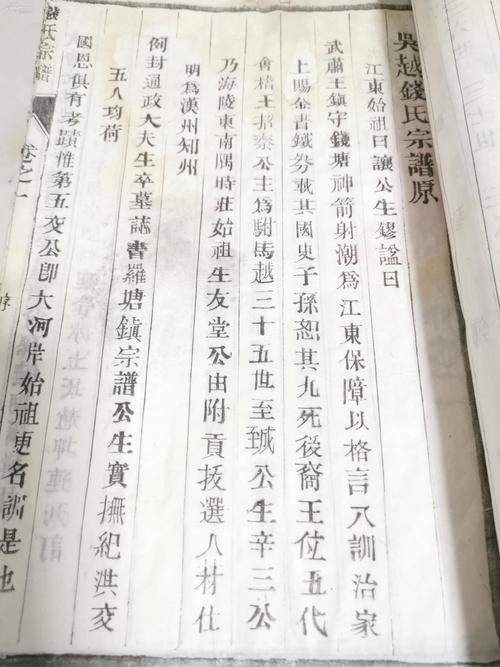 吳越錢氏宗譜原
江東始祖曰讓公生鏐諡曰
武肅王鎮守錢塘神箭射潮為江東保障以格言八訓治家
上賜金書鐵券載其國史子孫恕其九死後裔王位五代
會稽王招泰公主為駙馬越三十五世至鉞公生辛三公
乃海陵東南隅時莊始祖生友堂公由附貢拔選人材仕
明為漢州知州
例封通政大夫生卒墓誌書羅塘鎮宗譜公生實撫紀洪交
五人均荷
國恩俱有考蹟惟第五交公卽大河岸始祖更名訓是也
錢氏宗譜
卷之一